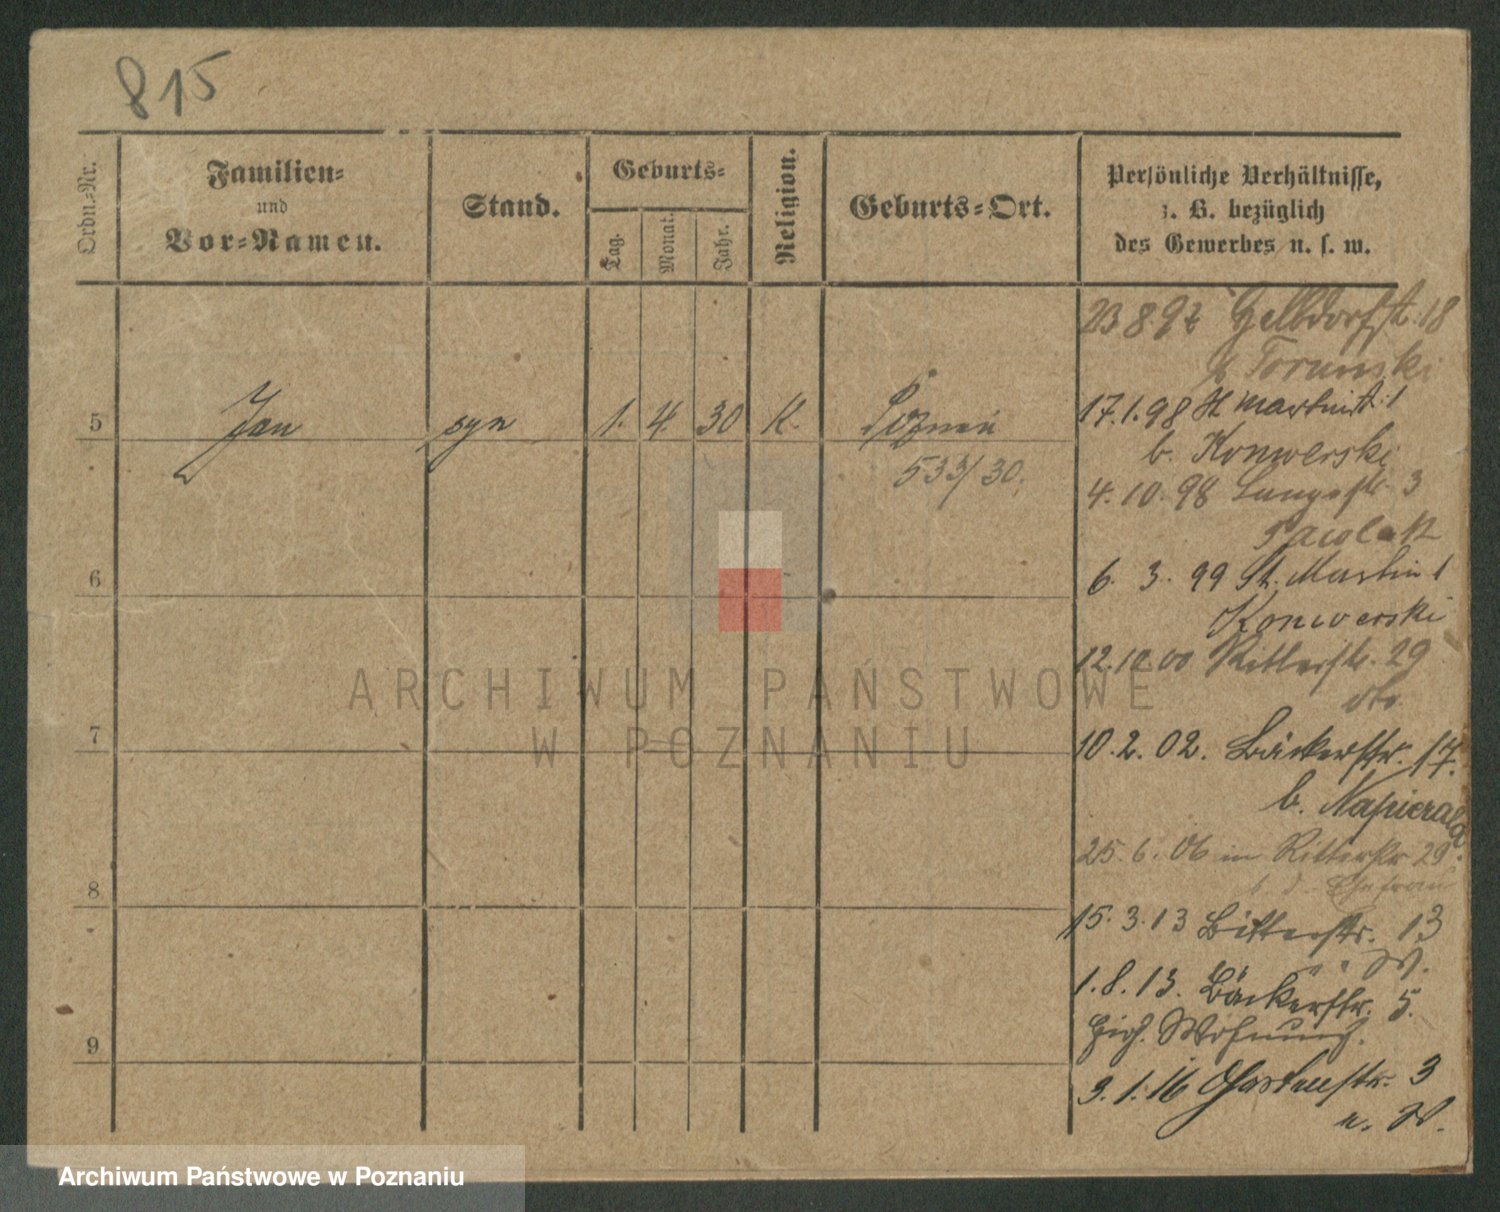 815
Ordn.-Nr.
Familien-
und
Vor-Namen.
Stand.
Geburts-
Tag.
Monat.
Jahr.
Religion.
Geburts-Ort.
Persönliche Verhältnisse,
z. B. bezüglich
des Gewerbes u. s. w.
5 Jan syn 1. 4. 30 K. Poznań
533/30.
6
7
8
9
23 8 97 Gelbdorfstr. 18
Torunski
17.1.98 St Martinstr. 1
b. Konwerski
4. 10. 98 Langestr. 3
Pacolak
6. 3. 99 St. Martin 1
Konwerski
12.10.00 Ritterstr. 29
10.2.02. Bäckerstr. 17.
b. Napierala
25. 6. 06 in Ritterstr 29
b. d. Ehefrau
15. 3. 13 Bitterstr. 13
W.
1. 8. 13. Bäckerstr. 5.
Wohnung.
3. 1. 16 Gartenstr. 3
n. W.
ARCHIWUM PAŃSTWOWE
W POZNANIU
Archiwum Państwowe w Poznaniu